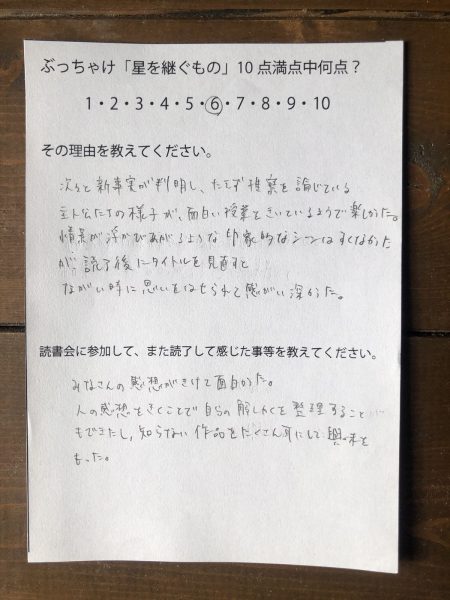 ぶっちゃけ「星を継ぐもの」10点満点中何点？
1・2・3・4・5・6・7・8・9・10
その理由を教えてください。
次々と新事実が判明し、たえず推察を論じている
主人公たちの様子が、面白い授業をきいているようで楽しかった。
情景が浮かびあがるような印象的なシーンはすくなかった
が読了後にタイトルを見直すと
ながい時に思いをはせられて感がい深かった。
読書会に参加して、また読了して感じた事等を教えてください。
みなさんの感想がきけて面白かった。
人の感想をきくことで自らの解しゃくを整理すること
もできたし、知らない作品をたくさん耳にして興味を
もった。